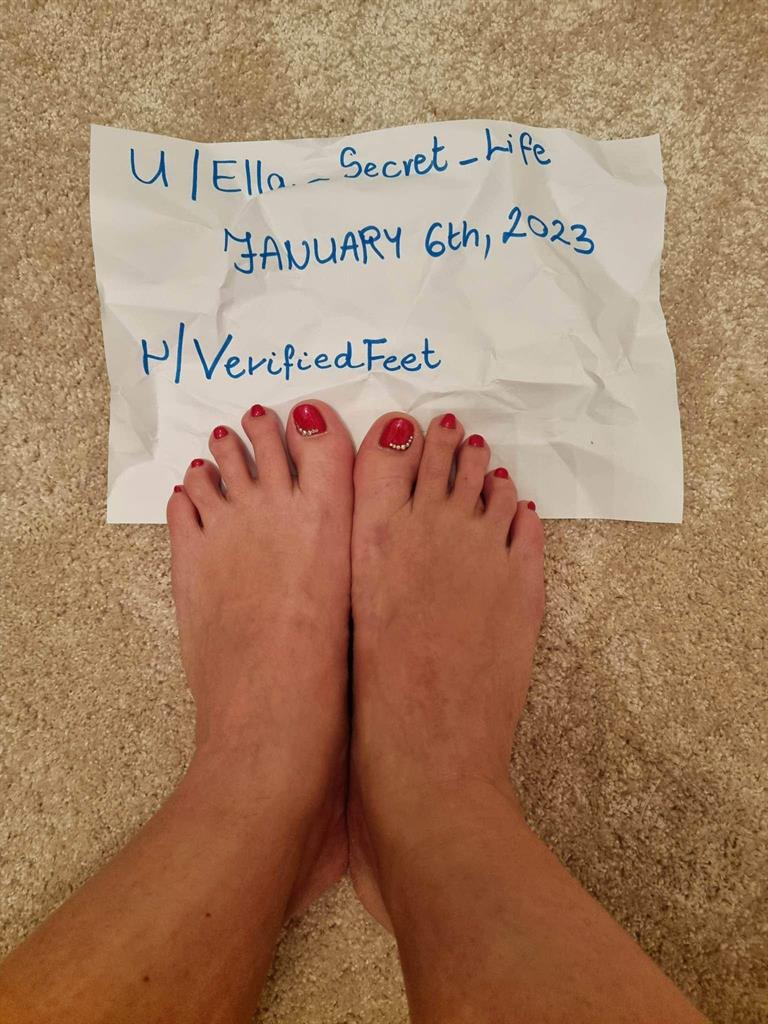 U/Ella__Secret_Life
JANUARY 6th, 2023
r/VerifiedFeet